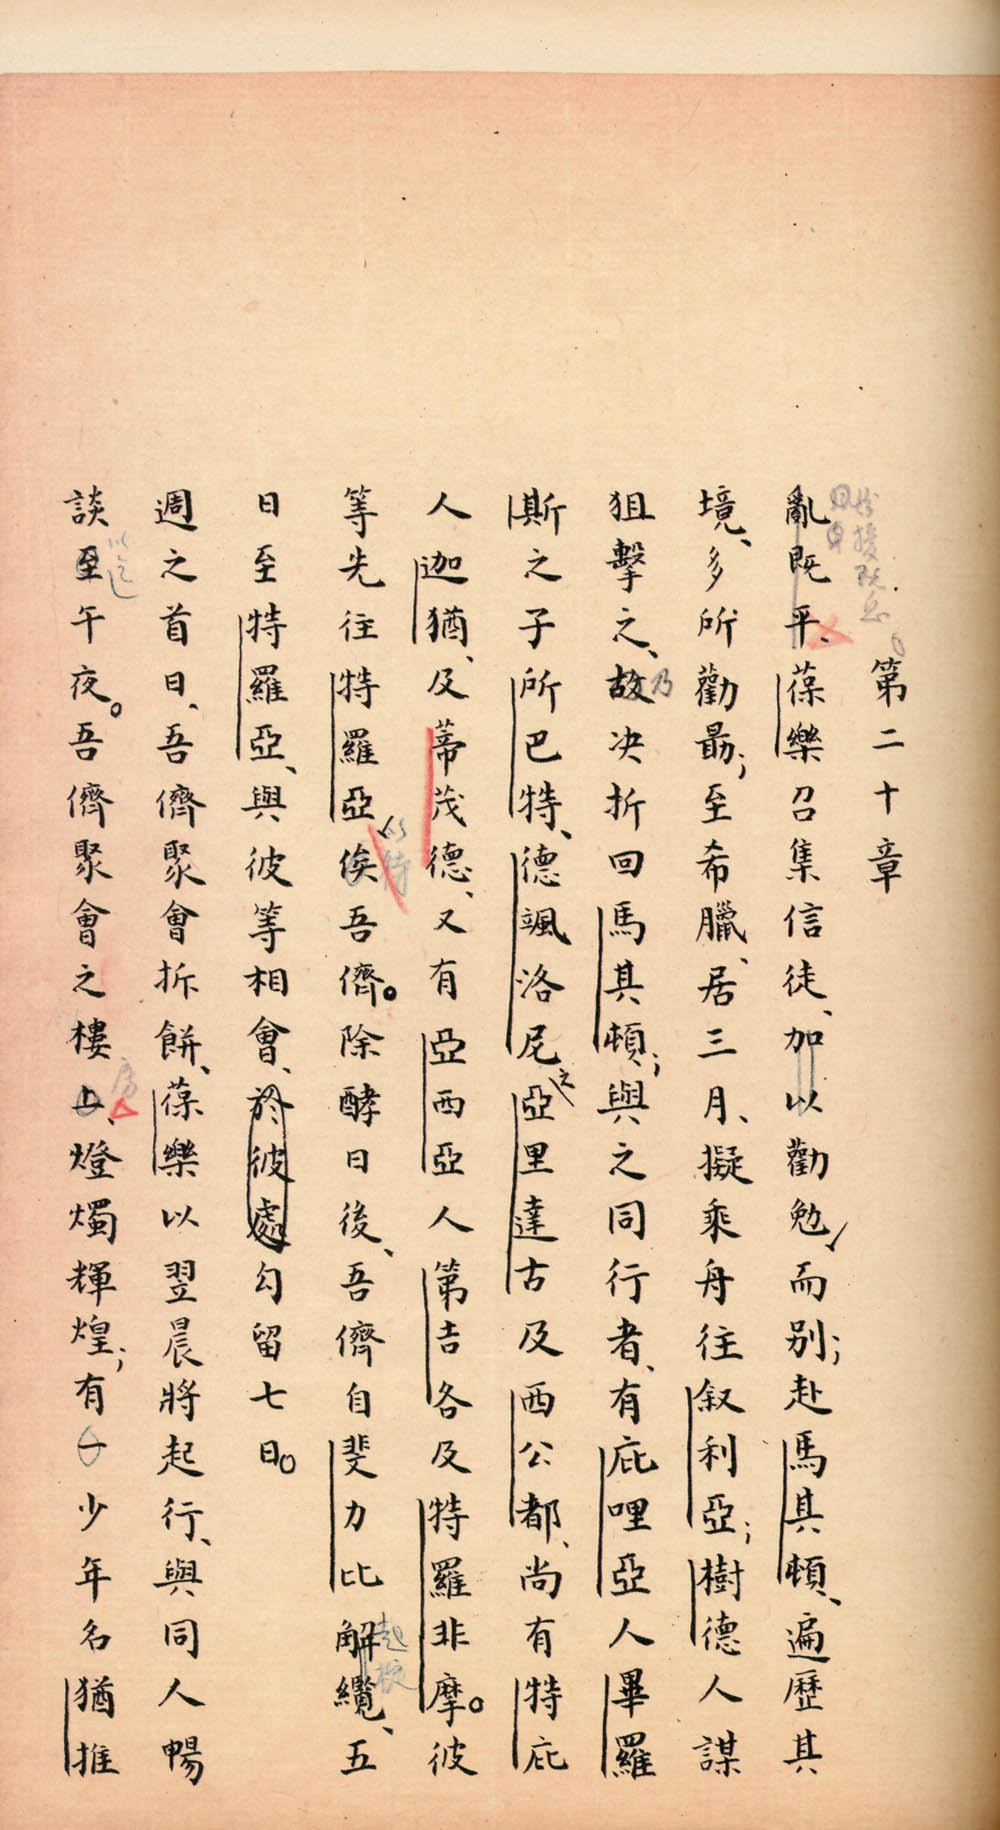 第二十章
亂既平、葆樂召集信徒、加以勸勉、而別；赴馬其頓、遍歷其
境、多所勸勗；至希臘、居三月、擬乘舟往叙利亞；樹德人謀
狙擊之、故乃決折回馬其頓；與之同行者、有庇哩亞人畢羅
斯之子所巴特、德颯洛尼之亞里達古及西公都、尚有特庇
人迦猶、及蒂茂德、又有亞西亞人第吉各及特羅非摩。彼
等先往特羅亞俟吾儕。除酵日後、吾儕自斐力比解纜、五
以待
起椗
日至特羅亞、與彼等相會、於彼處勾留七日。
週之首日、吾儕聚會拆餅、葆樂以翌晨將起行、與同人暢
談至午夜。吾儕聚會之樓上、燈燭輝煌；有一少年名猶推
房